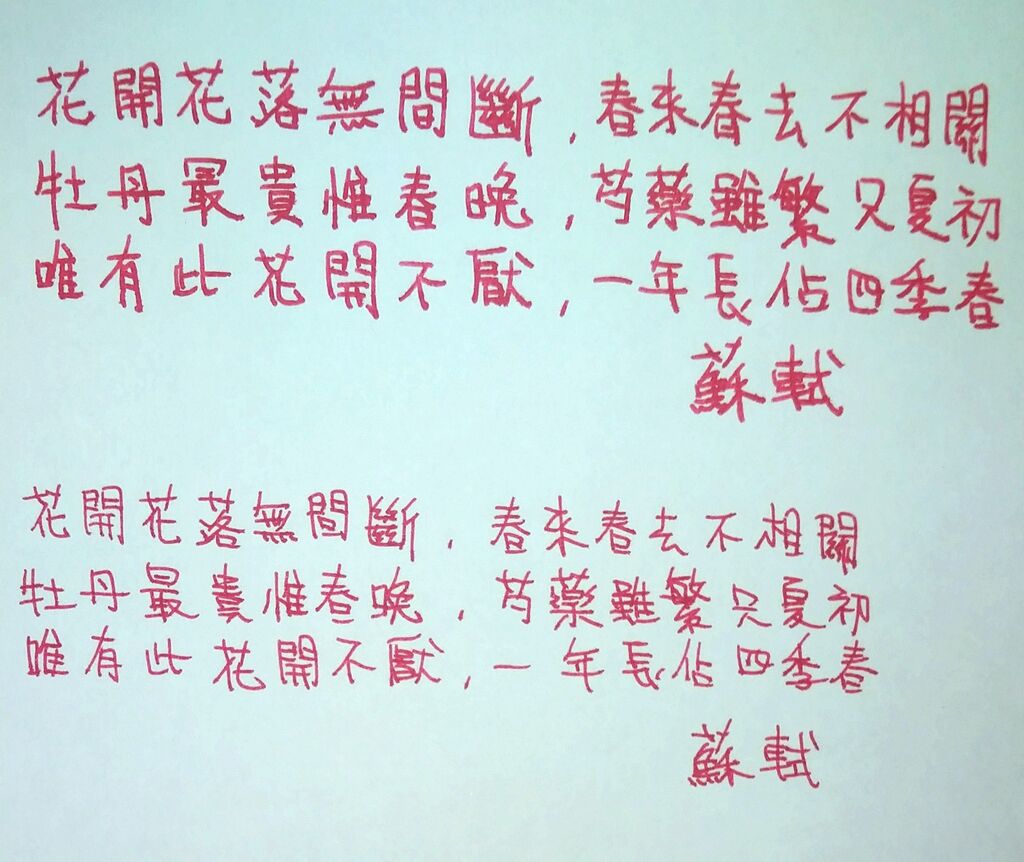 花開花落無間斷,春來春去不相關
牡丹最貴惟春晚,芍藥雖繁只夏初
唯有此花開不厭,一年長佔四季春
蘇軾
花開花落無間斷,春來春去不相關
牡丹最貴惟春晚,芍藥雖繁只夏初
唯有此花開不厭,一年長佔四季春
蘇軾